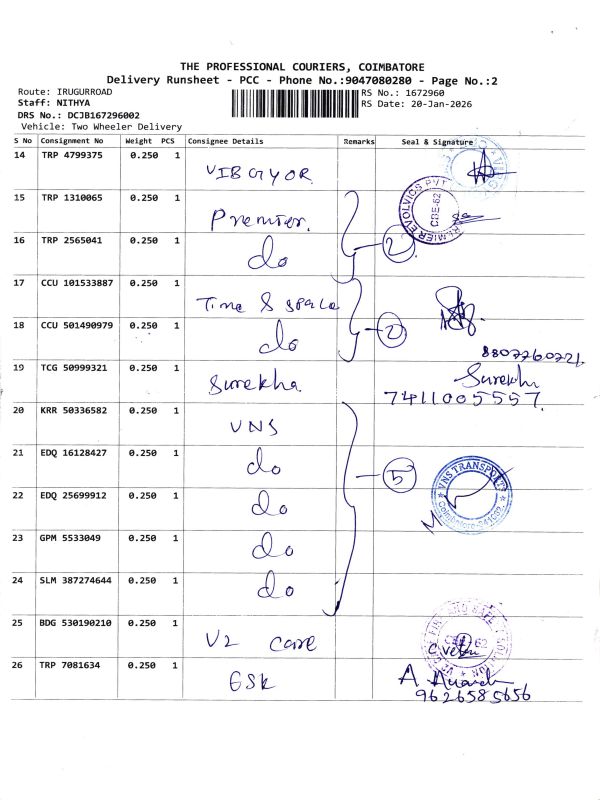 THE PROFESSIONAL COURIERS, COIMBATORE
Delivery Runsheet - PCC - Phone No.:9047080280 - Page No.:2
Route: IRUGURROAD
Staff: NITHYA
DRS No.: DCJB167296002
Vehicle: Two Wheeler Delivery
RS No.: 1672960
RS Date: 20-Jan-2026
S No Consignment No Weight PCS Consignee Details Remarks Seal & Signature
14 TRP 4799375 0.250 1 VIBGYOR
15 TRP 1310065 0.250 1 Premier.
16 TRP 2565041 0.250 1 do 2
17 CCU 101533887 0.250 1 Time & space
18 CCU 501490979 0.250 1 do 2
8807760721.
19 TCG 50999321 0.250 1 Surekha. Surekha
7411005557.
20 KRR 50336582 0.250 1 VNS
21 EDQ 16128427 0.250 1 do 5 VNS TRANSPORT
22 EDQ 25699912 0.250 1 do Coimbatore-641062
23 GPM 5533049 0.250 1 do
24 SLM 387274644 0.250 1 do
25 BDG 530190210 0.250 1 V2 care
26 TRP 7081634 0.250 1 GSK A.
9626585656